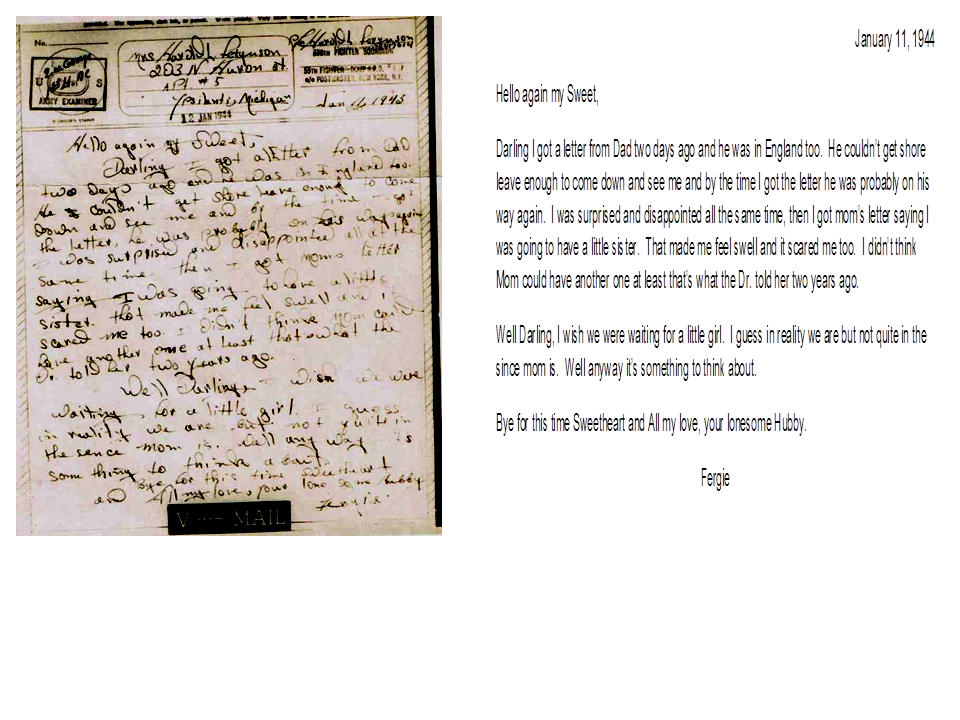 No.
Mrs Harold Ferguson
203 N Huron st
APT # 5
Ypsilanti, Michigan
12 JAN 1944
U S
ARMY EXAMINER
FIGHTER SQUADRON
55TH FIGHTER
c/o POSTMASTER, NEW YORK, N.Y.
Jan 11, 1945
Hello again my Sweet,
Darling I got a letter from Dad
two days ago and he was in England too.
He couldn't get shore leave enough to come
down and see me and by the time I got
the letter, he was probably on his way again
I was surprised and disappointed all at the
same time. then I got moms letter
saying I was going to have a little
sister. that made me feel swell and it
scared me too. I didn't think Mom could
have another one at least thats what the
Dr. told her two years ago.
Well Darling, I wish we were
waiting for a little girl. I guess
in reality we are but not quite in
the sence mom is. Well any way its
something to think about.
Bye for this time Sweetheart
and All my love, your lonesome hubby
Fergie
V MAIL
January 11, 1944
Hello again my Sweet,
Darling I got a letter from Dad two days ago and he was in England too. He couldn't get shore
leave enough to come down and see me and by the time I got the letter he was probably on his
way again. I was surprised and disappointed all the same time, then I got mom's letter saying I
was going to have a little sister. That made me feel swell and it scared me too. I didn't think
Mom could have another one at least that's what the Dr. told her two years ago.
Well Darling, I wish we were waiting for a little girl. I guess in reality we are but not quite in the
since mom is. Well anyway it's something to think about.
Bye for this time Sweetheart and All my love, your lonesome Hubby.
Fergie